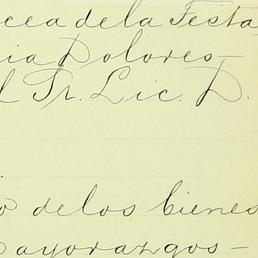 cea de la Testa
ia Dolores—
l Sr. Lic. D.
o de los bienes
Mayorazgos—